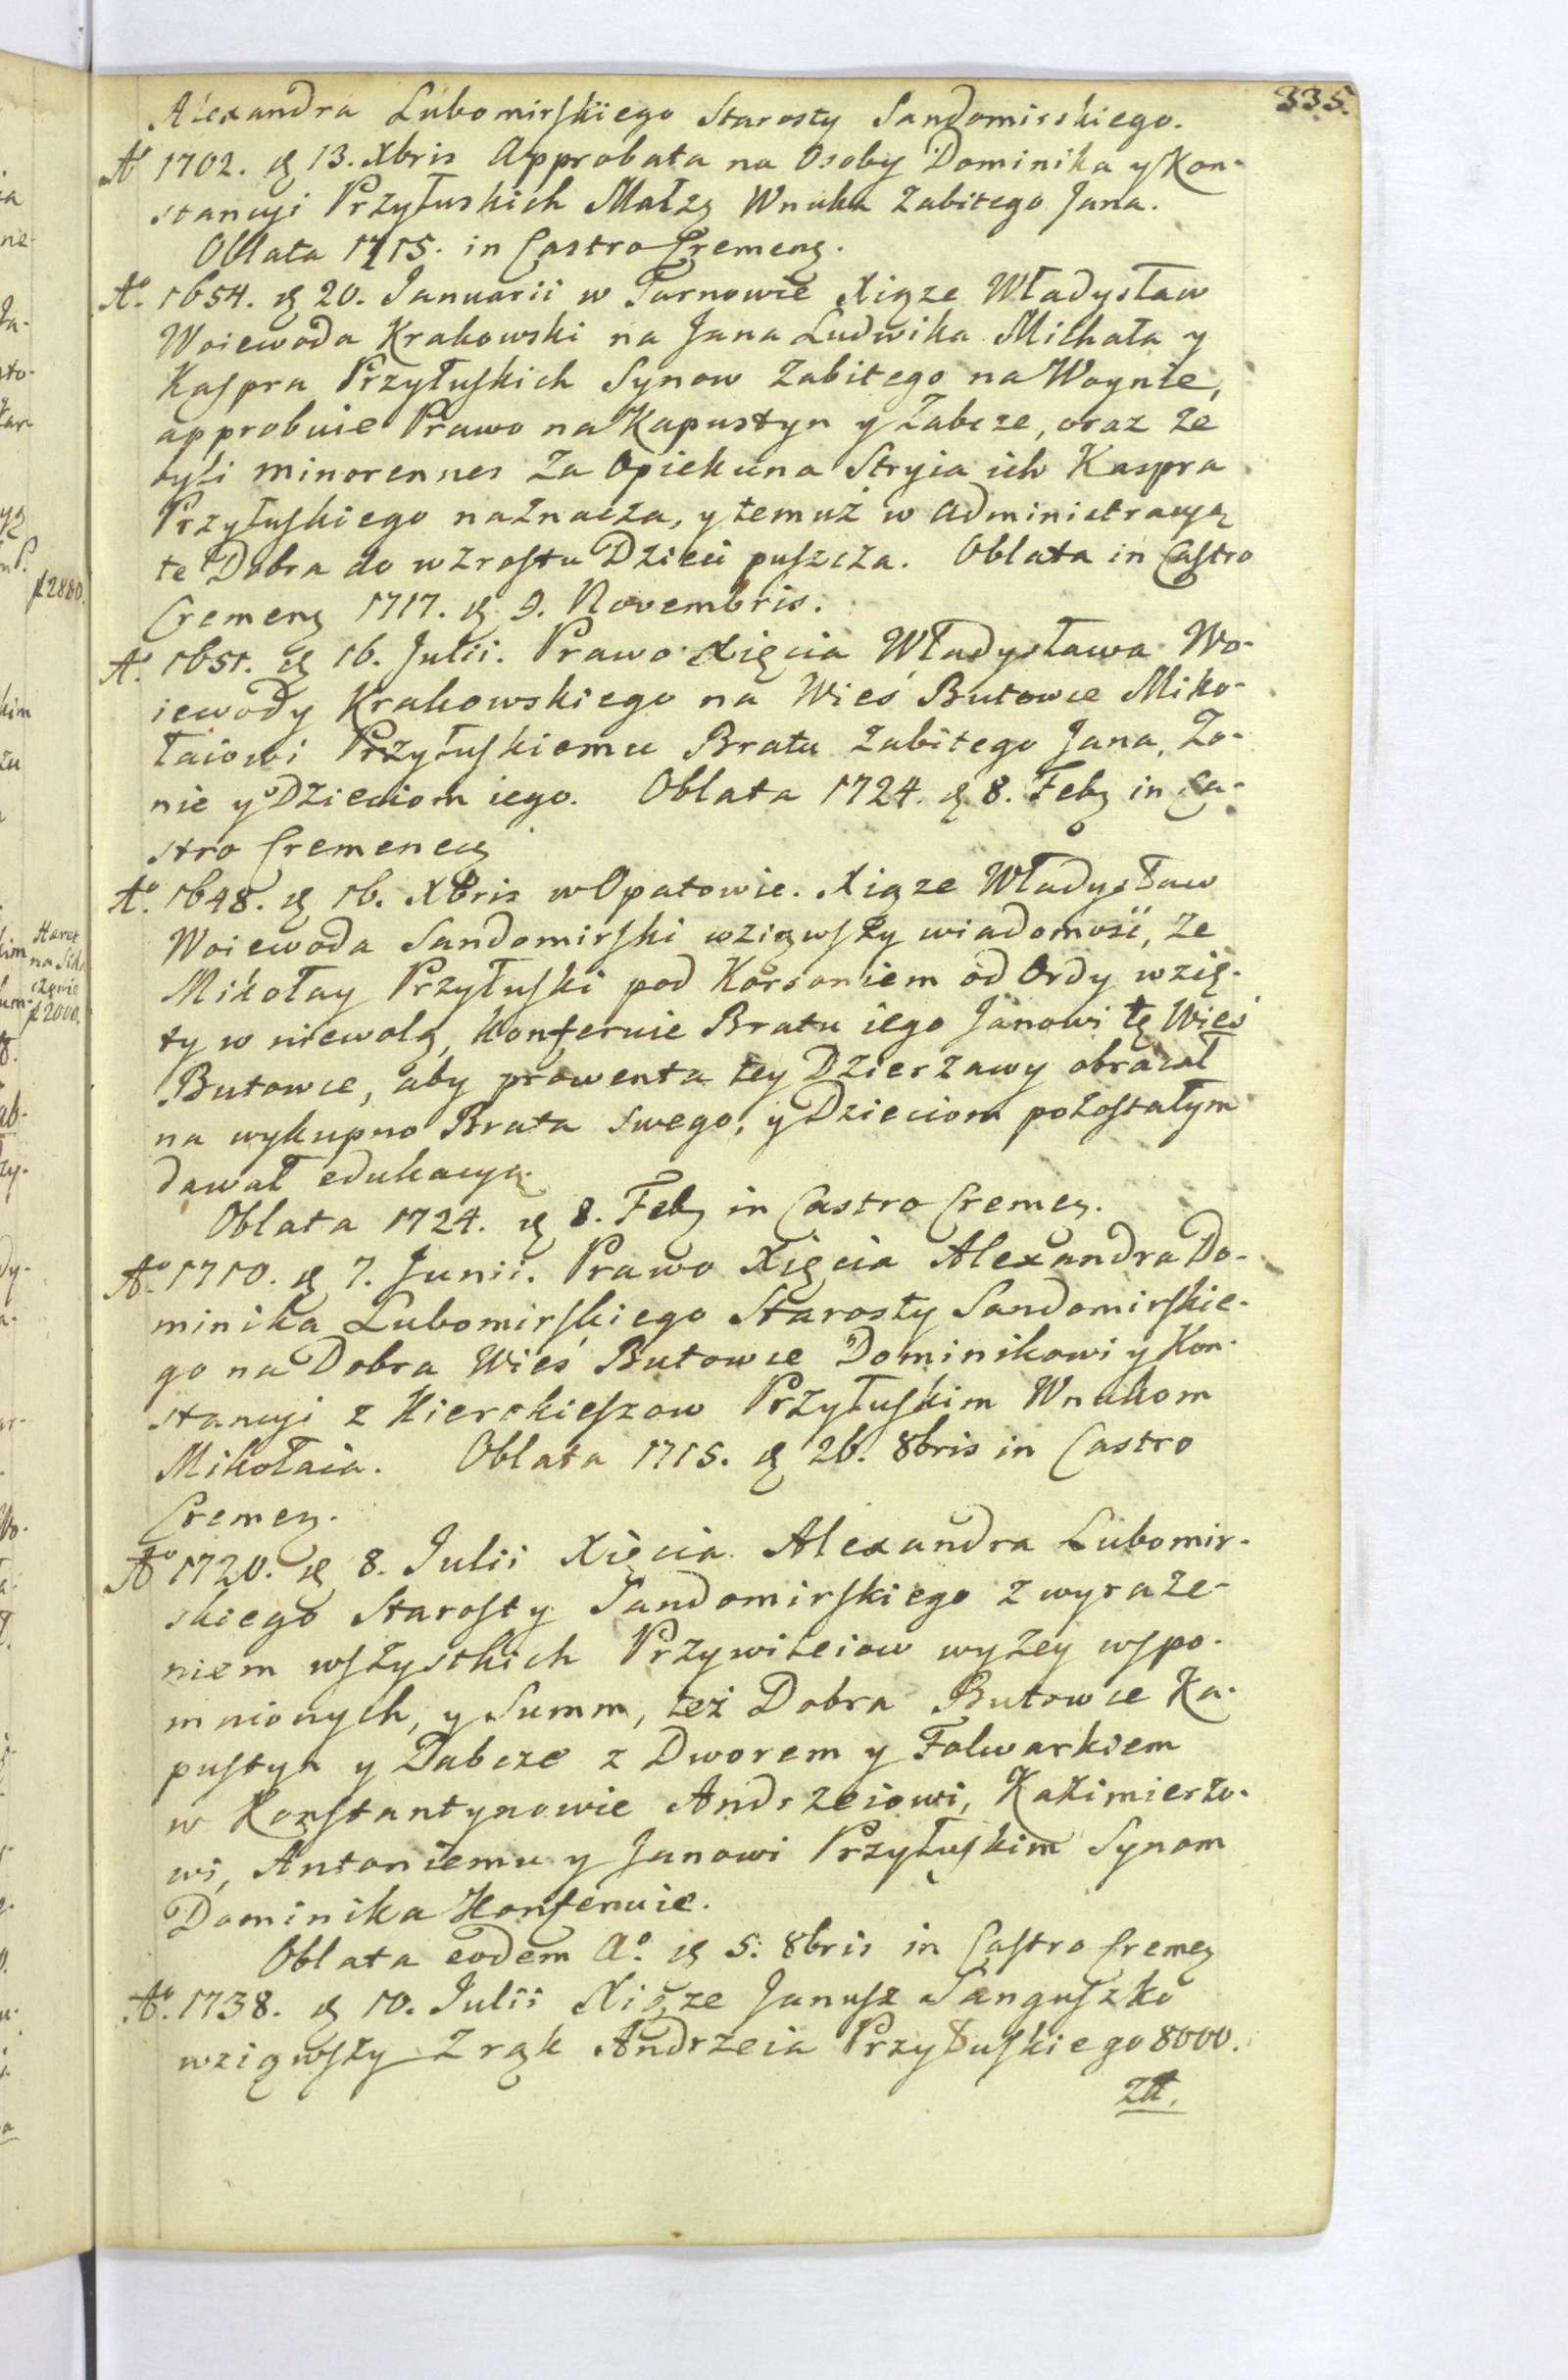 335.
Alexandra Lubomirskiego Starosty Sandomirskiego.
Aº 1702. d. 13. Xbris Approbata na Osoby Dominika y Kon-
stancyi Przyłuskich Małz. Wnuka Zabitego Jana.
Oblata 1715. in Castro Cremen.
Aº. 1654. d. 20. Januarii w Tarnowie Xiąze Władysław
Woiewoda Krakowski na Jana Ludwika Michała y
Kaspra Przyłuskich Synow Zabitego na Woynie,
approbuie Prawo na Kapustyn y Zabcze, oraz ze
byli minorennes za Opiekuna Stryia ich Kaspra
Przyłuskiego naznacza, y temuż w administracyą
te Dobra do wzrostu Dzieci puszcza. Oblata in Castro
Cremen. 1717. d. 9. Novembris.
Aº. 1651. d. 16. Julii. Prawo Xięcia Władysława Wo-
iewody Krakowskiego na Wieś Butowce Miko-
łaiowi Przyłuskiemu Bratu Zabitego Jana, Żo-
nie y Dzieciom iego. Oblata 1724. d. 8. Feb. in Ca-
stro Cremenec.
Aº. 1648. d. 16. Xbris w Opatowie. Xiąze Władysław
Woiewoda Sandomirski wziąwszy wiadomość, ze
Mikołay Przyłuski pod Korsoniem od Ordy wzię-
ty w niewolą, Konferuie Bratu iego Janowi tę Wieś
Butowce, aby prowenta tey Dzierzawy obracał
na wykupno Brata swego, y Dzieciom pozostałym
dawał edukacyą.
Oblata 1724. d. 8. Feb. in Castro Cremen.
Aº. 1710. d. 7. Junii. Prawo Xięcia Alexandra Do-
minika Lubomirskiego Starosty Sandomirskie-
go na Dobra Wieś Butowce Dominikowi y Kon-
stancyi z Kierskieszow Przyłuskim Wnukom
Mikołaia. Oblata 1715. d. 26. 8bris in Castro
Cremen.
Aº 1720. d. 8. Julii Xięcia Alexandra Lubomir-
skiego Starosty Sandomirskiego z wyraze-
niem wszystkich Przywileiow wyzey wspo-
mnionych, y Summ, też Dobra Butowce Ka-
pustyn y Zabcze z Dworem y Folwarkiem
w Konstantynowie Andrzeiowi, Kazimierzo-
wi, Antoniemu y Janowi Przyłuskim Synom
Dominika Konferuie.
Oblata eodem Aº. d. 5. 8bris in Castro Cremen.
Aº. 1738. d. 10. Julii Xiąze Janusz Sanguszko
wziąwszy z rąk Andrzeia Przyłuskiego 8000.
Zł.